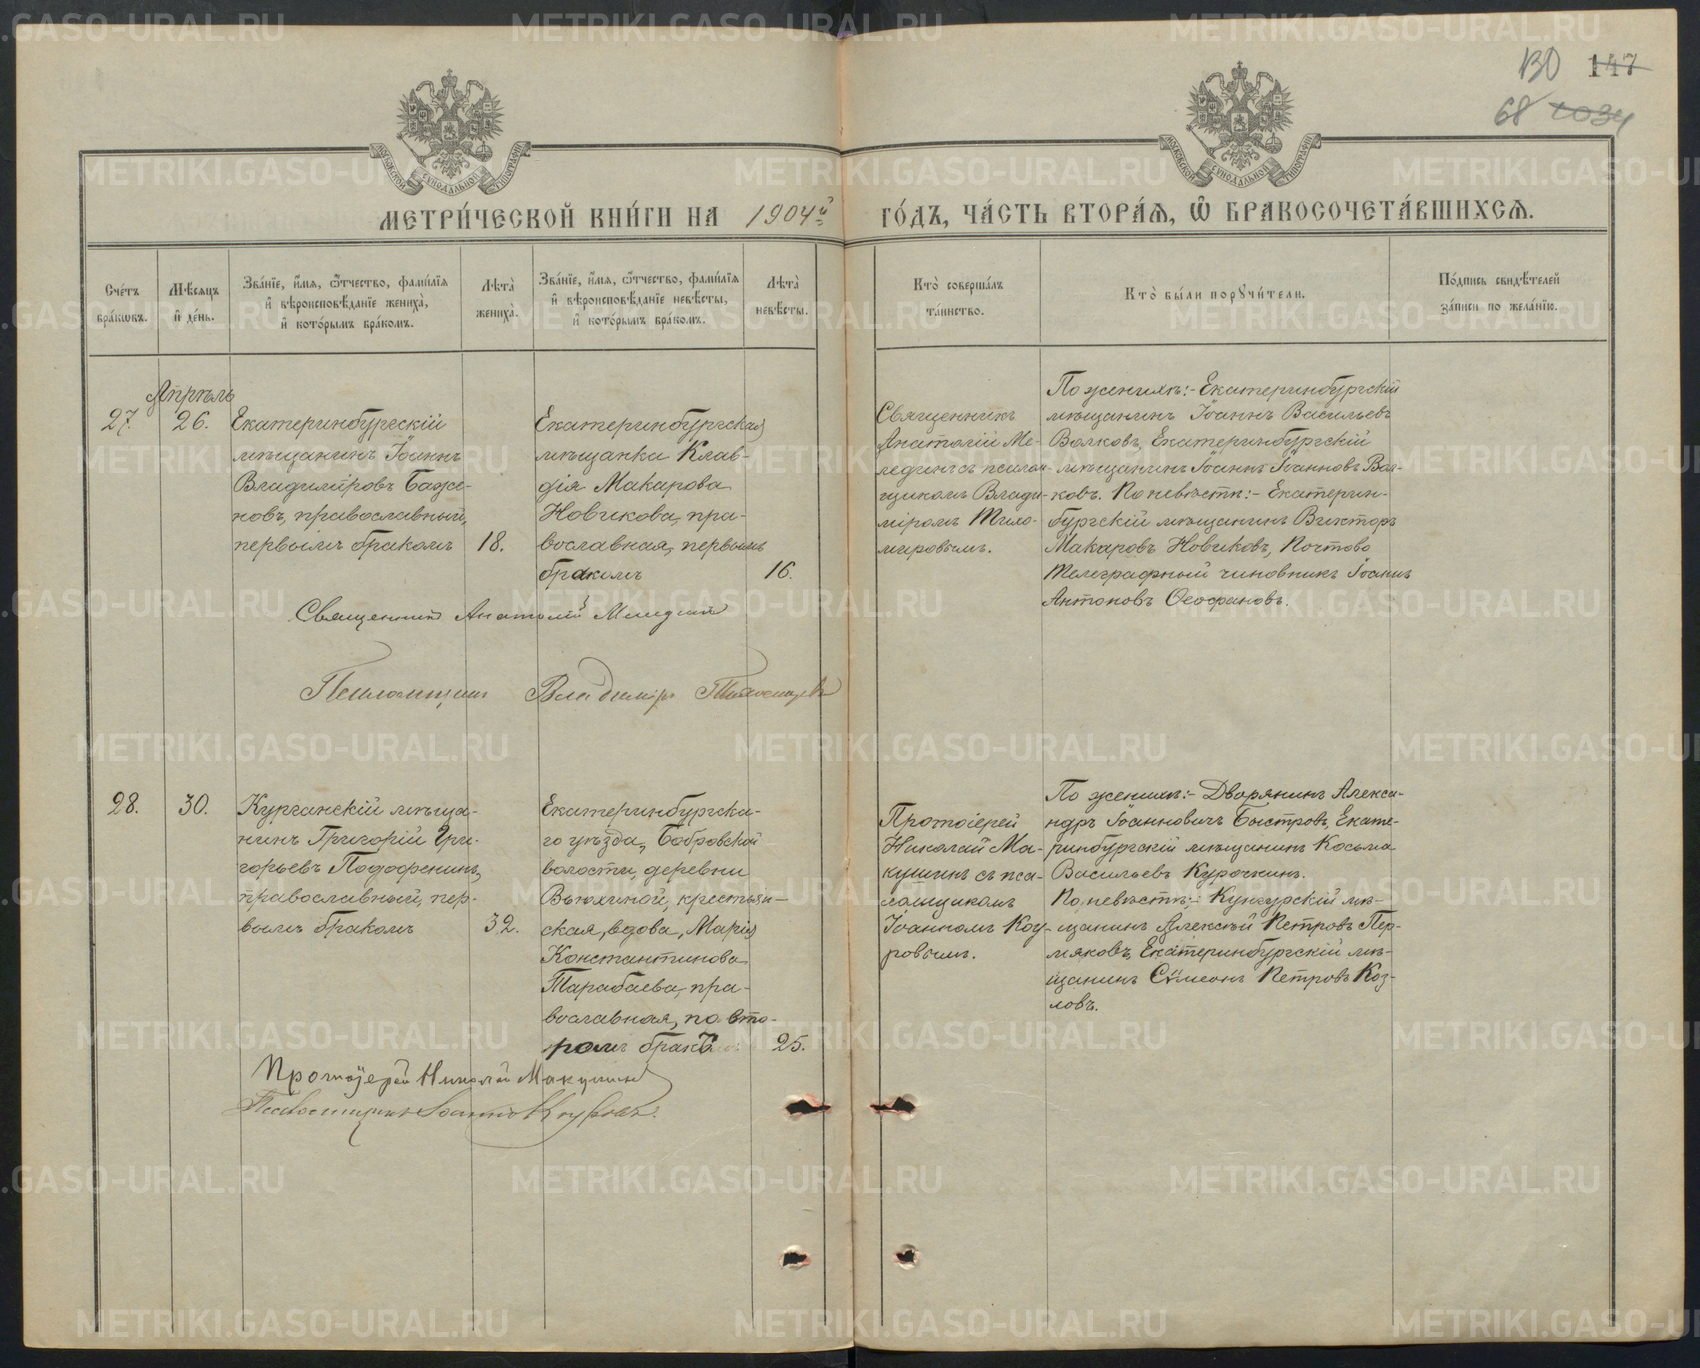 130 147
68 1034
МОСКОВСКОЙ СѴНОДАЛЬНОЙ ТИПОГРАФІИ
МОСКОВСКОЙ СѴНОДАЛЬНОЙ ТИПОГРАФІИ
МЕТРИ́ЧЕСКОЙ КНИ́ГИ НА 1904й ГО́ДЪ, ЧА́СТЬ ВТОРА́Ѧ, Ѿ БРАКОСОЧЕТА́ВШИХСѦ.
Сче́тъ
бра́кѡвъ.
Мѣ́сѧцъ
и҆ де́нь.
Зва́нїе, и҆́мѧ, ѻ҆́тчество, фами́лїѧ
и҆ вѣроисповѣ́данїе жениха̀,
и҆ кото́рымъ бра́комъ.
Лѣ́та̀
жениха̀.
Зва́нїе, и҆́мѧ, ѻ҆́тчество, фами́лїѧ
и҆ вѣроисповѣ́данїе невѣ́сты,
и҆ кото́рымъ бра́комъ.
Лѣ́та̀
невѣ́сты.
Кто̀ соверша́лъ
та́инство.
Кто̀ бы́ли порꙋчи́тели.
По́дпись свидѣ́телей
за́писи по жела́нїю.
Апрѣль
27. 26.
Екатеринбургскій
мѣщанинъ Іоаннъ
Владиміровъ Баже-
новъ, православный,
первымъ бракомъ
18.
Екатеринбургская
мѣщанка Клав-
дія Макарова
Новикова, пра-
вославная, первымъ
бракомъ
16.
Священникъ
Анатолій Ме-
лединъ съ псалом-
щикомъ Влади-
міромъ Тихо-
мировымъ.
По женихѣ:- Екатеринбургскій
мѣщанинъ Іоаннъ Васильевъ
Волковъ, Екатеринбургскій
мѣщанинъ Іоаннъ Іоанновъ Вол-
ковъ. По невѣстѣ:- Екатерин-
бургскій мѣщанинъ Викторъ
Макаровъ Новиковъ, Почтово
Телеграфный чиновникъ Іоаннъ
Антоновъ Ѳеофановъ.
Священникъ Анатолій Меледин
Псаломщикъ Владиміръ Тихомировъ
28. 30.
Курганскій мѣща-
нинъ Григорій Гри-
горьевъ Подофенинъ,
православный, пер-
вымъ бракомъ
32.
Екатеринбургска-
го уѣзда, Бобровской
волости, деревни
Вьюхиной, крестьян-
ская вдова, Марія
Константинова
Тарабаева, пра-
вославная, по вто-
ромъ бракѣ
25.
Протоіерей
Николай Ма-
кушинъ съ пса-
ломщикомъ
Іоанномъ Коу-
ровымъ.
По женихѣ:- Дворянинъ Алекса-
ндръ Іоанновичъ Быстровъ, Екате-
ринбургскій мѣщанинъ Косьма
Васильевъ Курочкинъ.
По невѣстѣ:- Кунгурскій мѣ-
щанинъ Алексѣй Петровъ Пер-
мяковъ, Екатеринбургскій мѣ-
щанинъ Сѵмеонъ Петровъ Коз-
ловъ.
Протоіерей Николай Макушинъ
Псаломщикъ Іоаннъ Коуровъ.